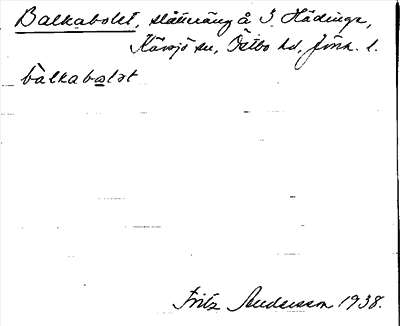 Balkabolet, slåtteräng å I. Hädinge,
Kävsjö sn, Östbo hd, Jönk. l.
bàlkabolət
Fritz Andersson 1938.